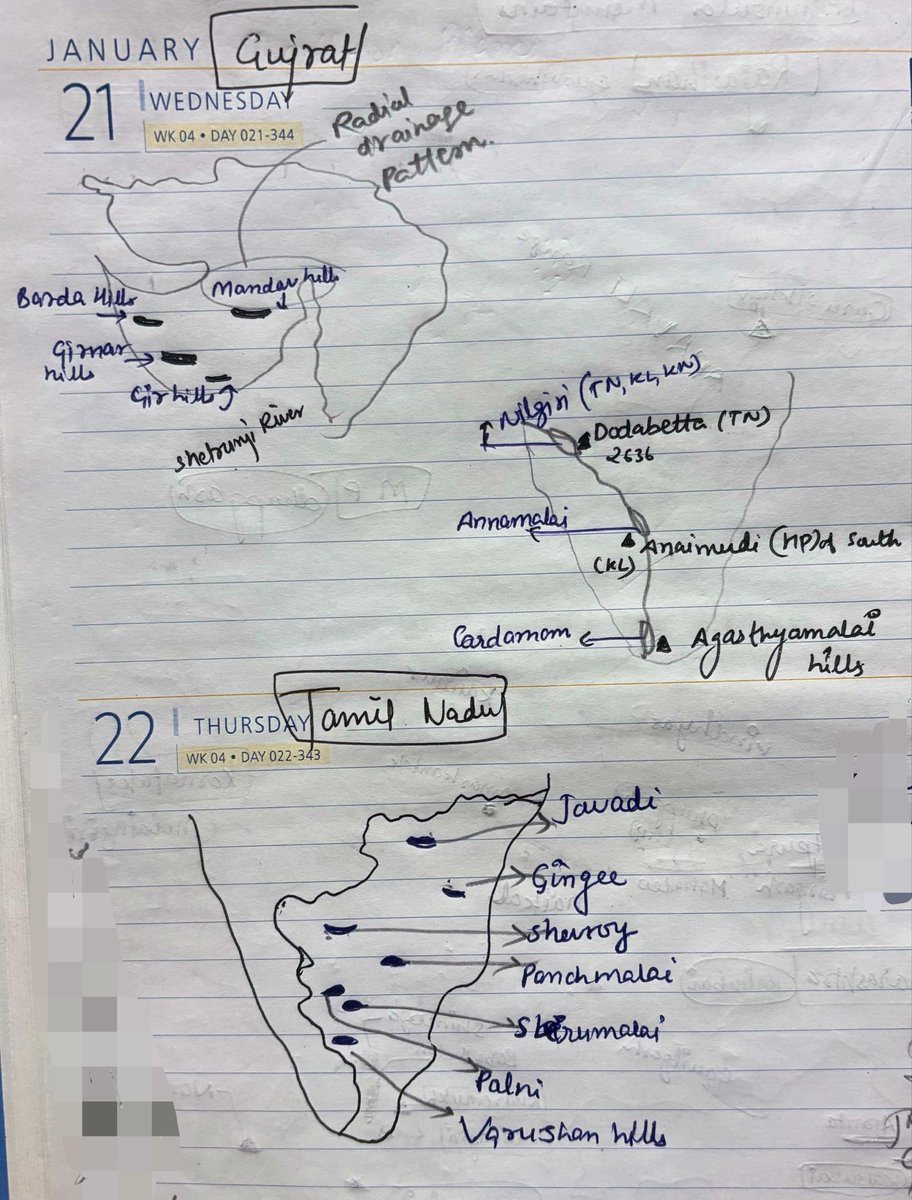 JANUARY Gujrat
21 WEDNESDAY
WK 04 • DAY 021-344
Radial
drainage
pattern.
Mandav hills
Barda Hills
Girnar
hills
Gir hills
shetrunji River
Nilgiri (TN, KL, KN)
Dodabetta (TN)
2636
Annamalai
Anaimudi (HP) of South
(KL)
Cardamom
Agasthyamalai
hills
22 THURSDAY Tamil Nadu
WK 04 • DAY 022-343
Javadi
Gingee
shevroy
Panchmalai
Palni
Varushan hills